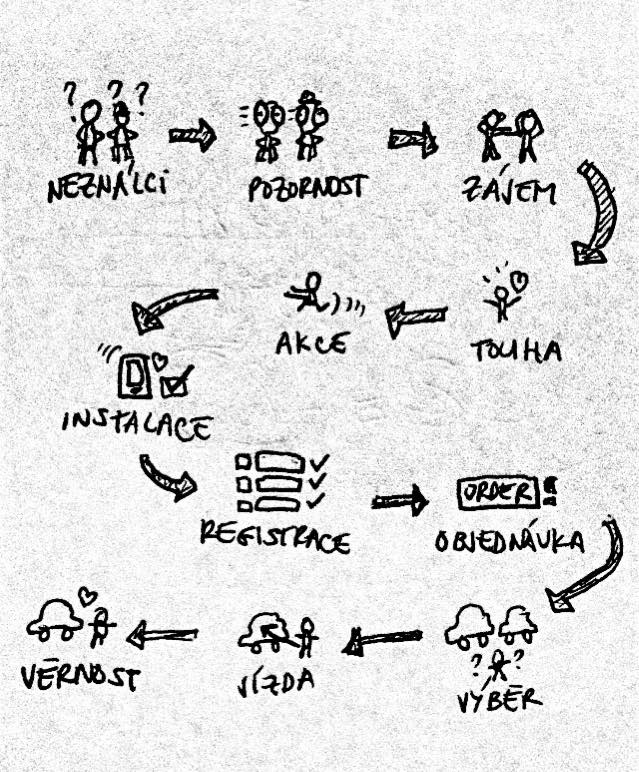 ? ? ?
NEZNÁLCI
POZORNOST
ZÁJEM
TOUHA
AKCE
INSTALACE
REGISTRACE
ORDER
OBJEDNÁVKA
? ?
VÝBĚR
JÍZDA
VĚRNOST